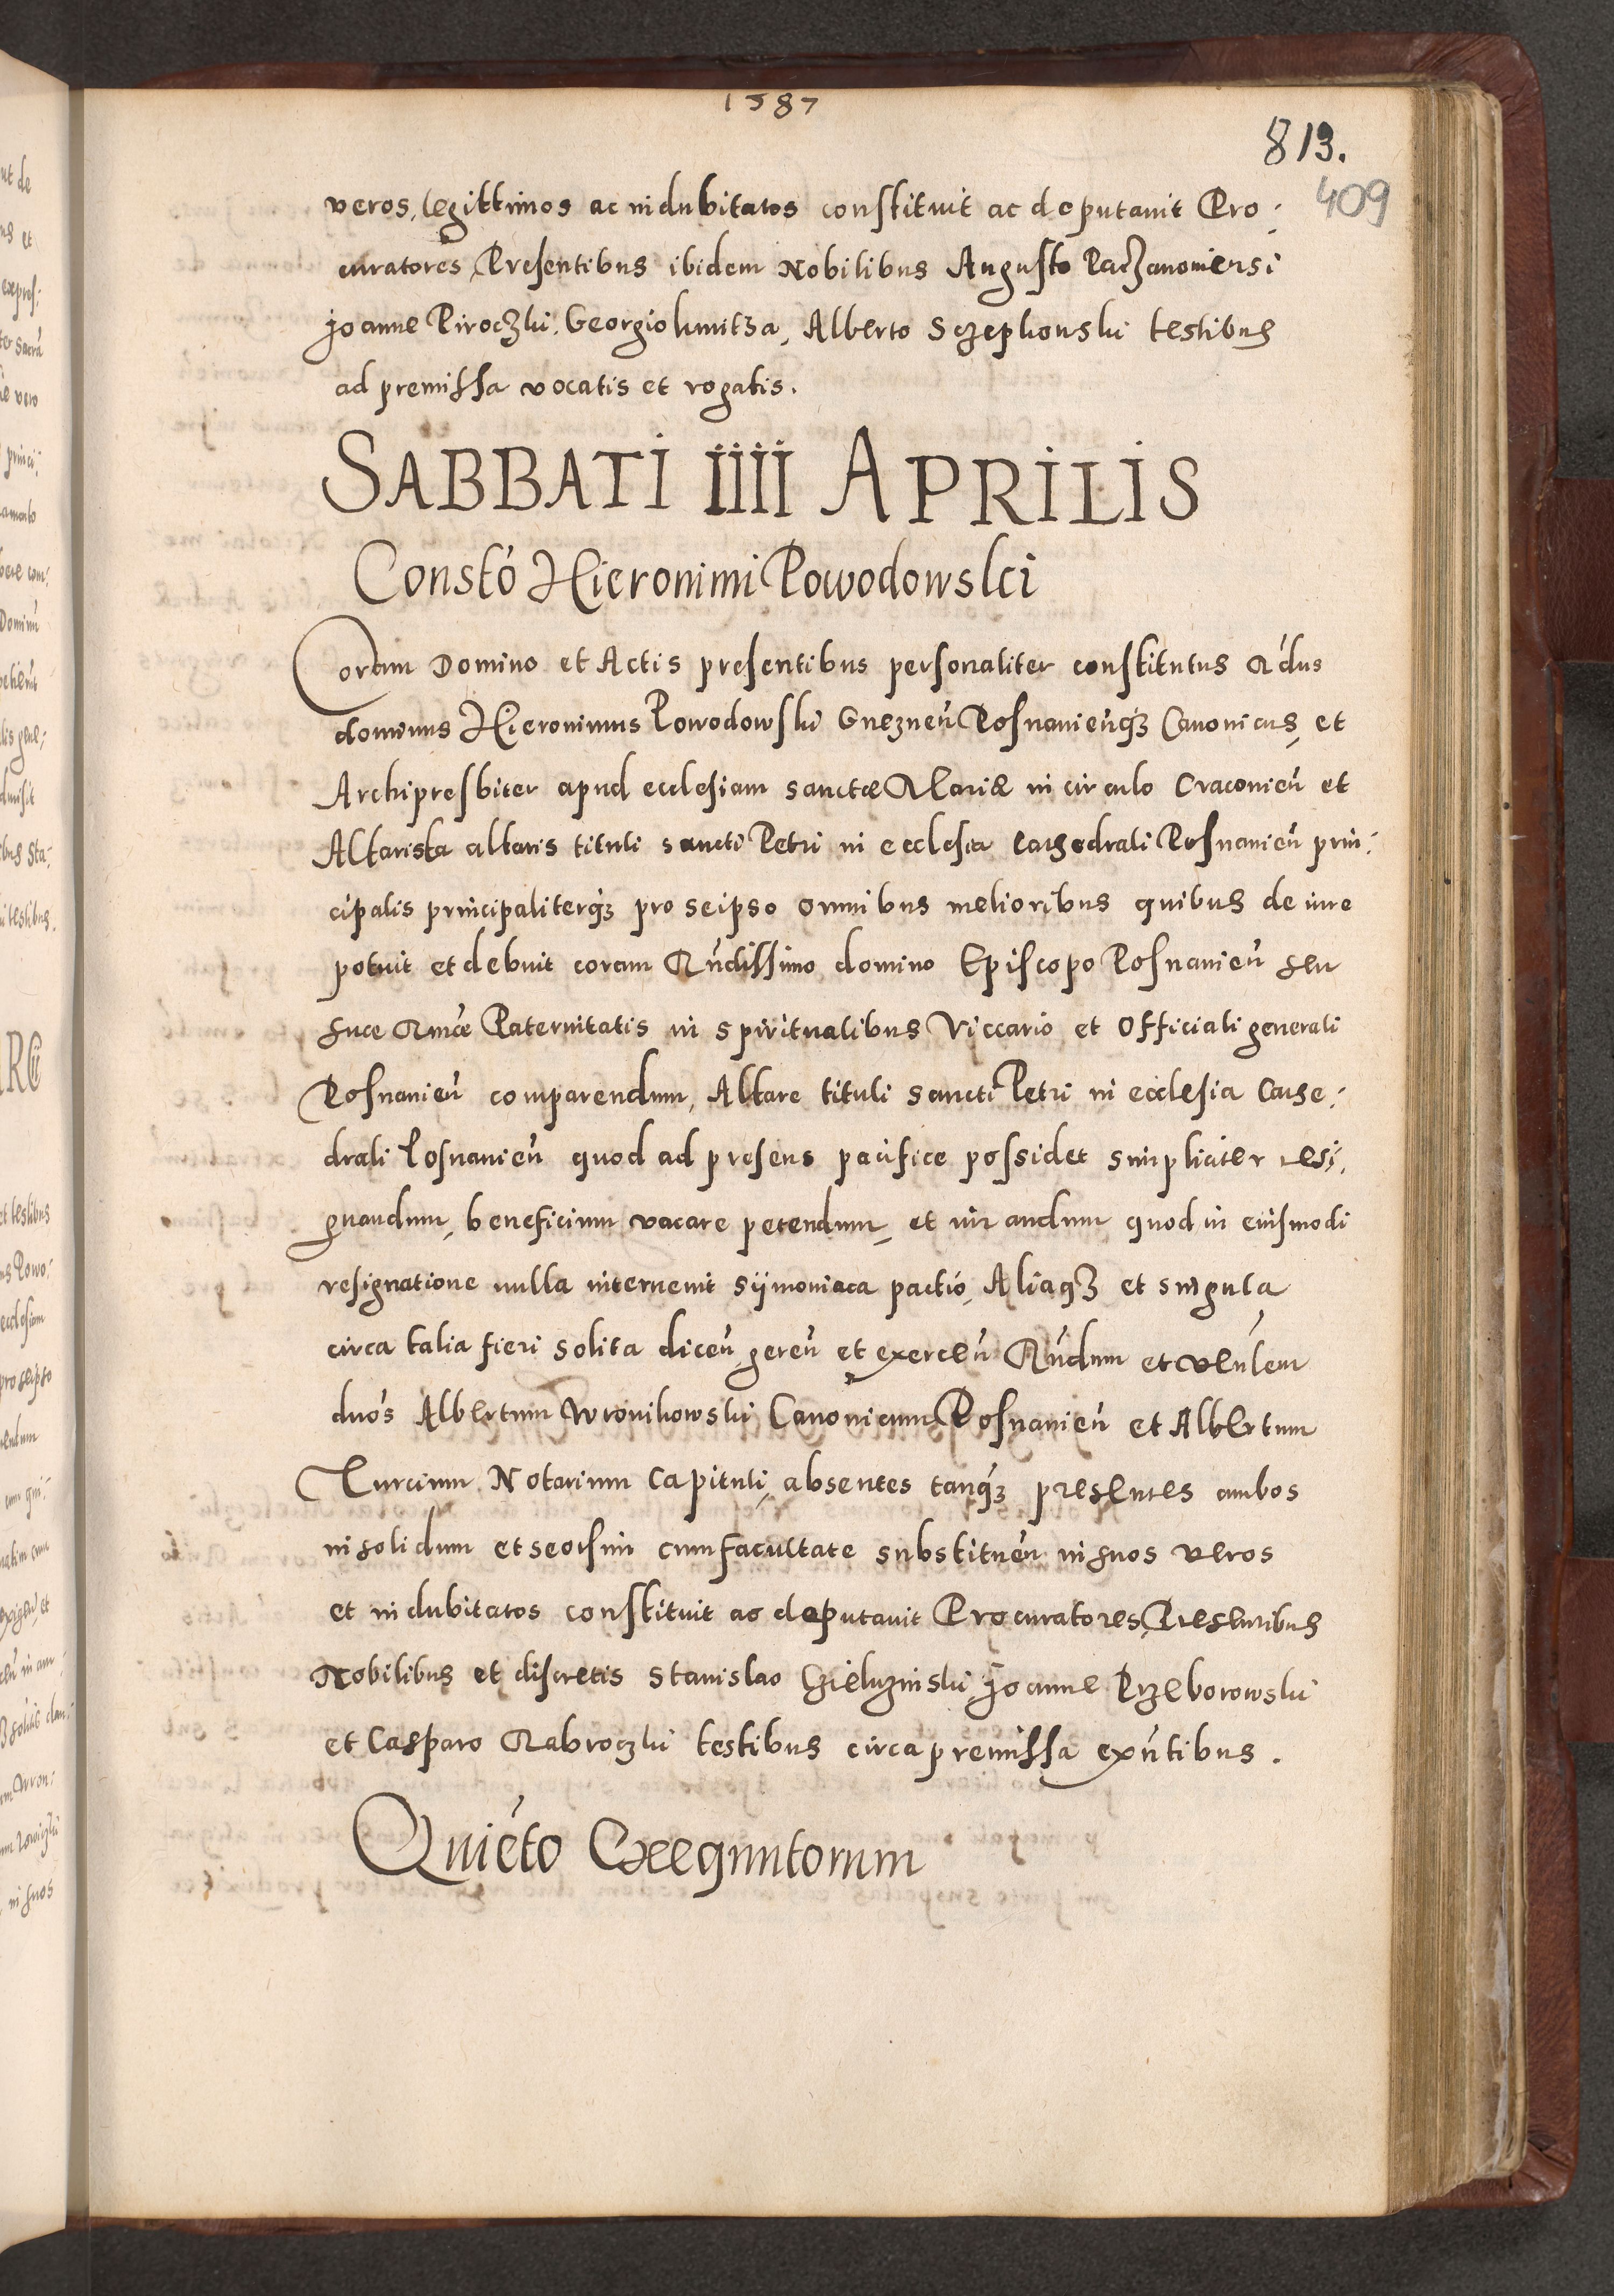 1587
813.
409
veros, legittimos ac indubitatos constituit ac deputauit Pro-
curatores, Presentibus ibidem Nobilibus Augusto Paczanowiersi
Joanne Piroczki, Georgio kmitza, Alberto Sczepkonski testibus
ad premissa vocatis et rogatis.
SABBATI IIII APRILIS
Constõ Hieronimi Powodowski
Coram Domino et Actis presentibus personaliter constitutus R̃dus
dominus Hieronimus Powodowski Gneznen̄ Posnanien̄q3 Canonicus, et
Archipresbiter apud ecclesiam sanctæ Mariæ in circulo Cracouien̄ et
Altarista altaris tituli sancti Petri in ecclesia cathedrali Posnanien̄ prin-
cipalis principaliterq3 pro seipso omnibus melioribus quibus de iure
potuit et debuit coram Rn̄dissimo domino Episcopo Posnanien̄ seu
suæ Rmæ Paternitatis in spiritualibus Viccario et Officiali generali
Posnanien̄ comparendum, Altare tituli sancti Petri in ecclesia Cathe-
drali Posnanien̄ quod ad presens pacifice possidet simpliciter resi-
gnandum, beneficium vacare petendum, et iurandum quod in eiusmodi
resignatione nulla interuenit sijmoniaca pactio, Aliaq3 et singula
circa talia fieri solita dicen̄ geren̄ et exercen̄ Rn̄dum et Ven̄lem
dños Albertum Wronikowski Canonicum Posnanien̄ et Albertum
Turcium Notarium Capituli, absentes tanq̃3 presentes ambos
insolidum et seorsim cum facultate substituen̄ in suos veros
et indubitatos constituit ac deputauit Procuratores, Presentibus
Nobilibus et discretis Stanislao Joanne Przeborowski
et Casparo Rabroczki testibus circa premissa exn̄tibus.
Quiẽto Exequutorum